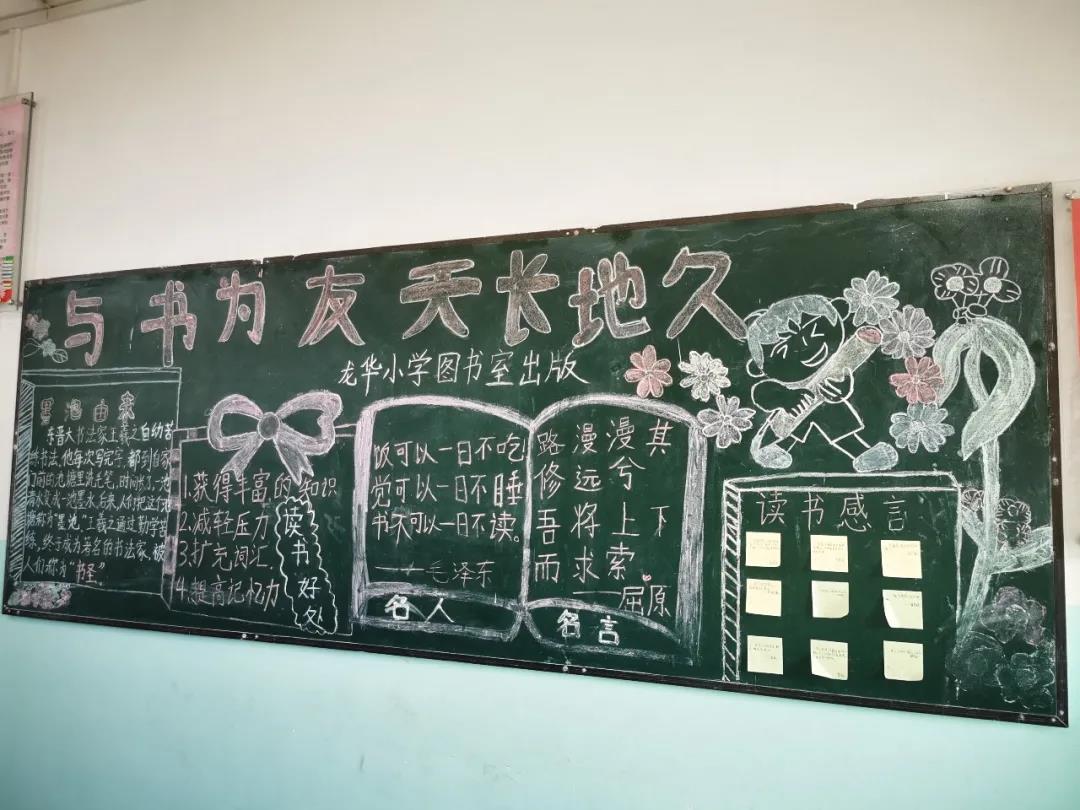 与书为友天长地久
龙华小学图书室出版
墨池由来
东晋大书法家王羲之自幼苦
练书法,他每次写完字,都到自家
门前的池塘里洗毛笔,时间长了,一池
清水变成一池墨水,后来,人们把这个池
塘称为"墨池"王羲之通过勤学苦
练,终于成为著名的书法家,被
人们称为"书圣"
1.获得丰富的知识
2.减轻压力
3.扩充词汇.
4.提高记忆力
读书好处
饭可以一日不吃
觉可以一日不睡
书不可以一日不读。
——毛泽东
名人
路漫漫其
修远兮
吾将上下
而求索
——屈原
名言
读书感言